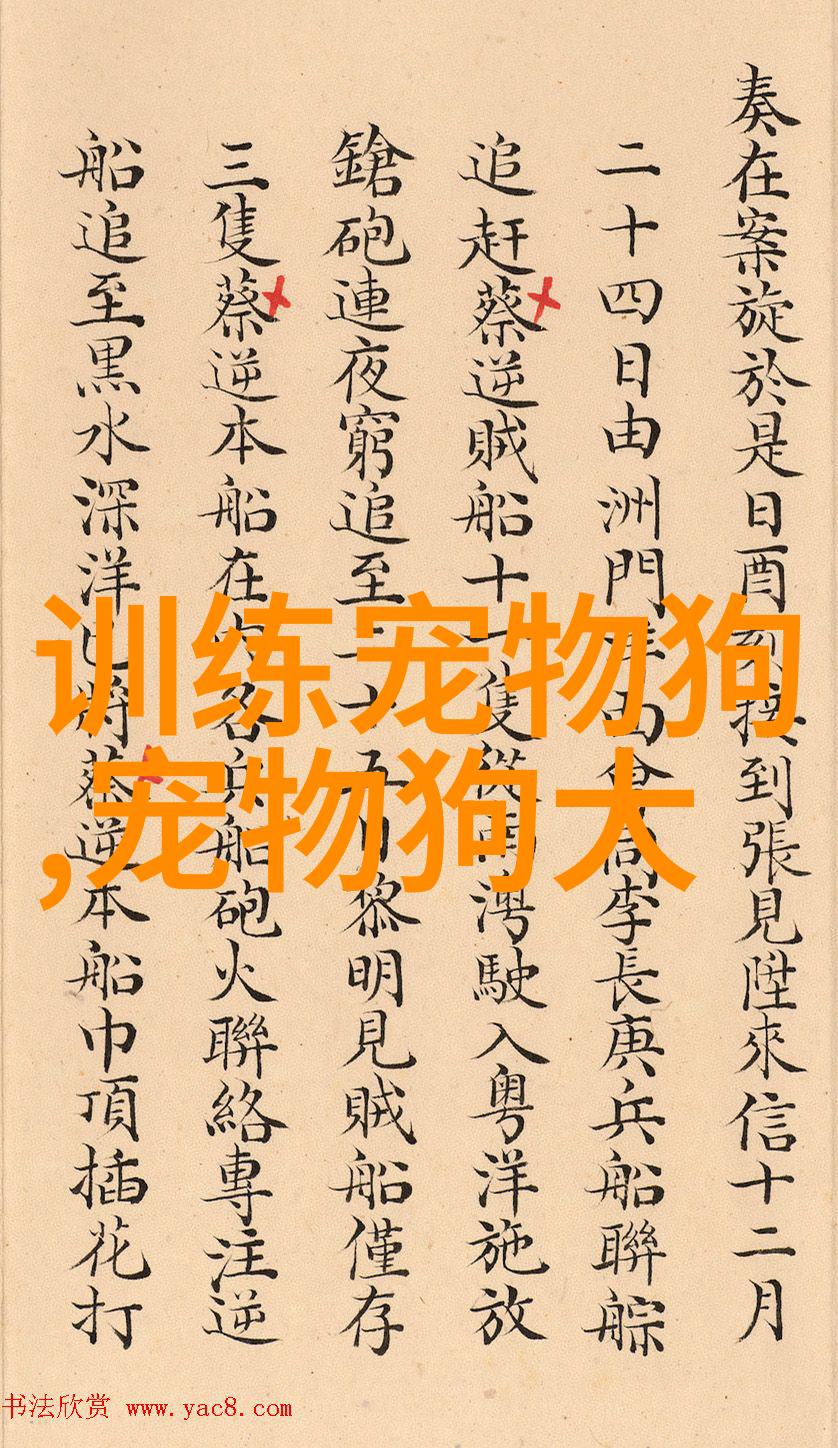 奏在案旋於是日酉刻接到張見陞來信十二月
二十四日由洲門
李長庚兵船聯䑸
追赶蔡逆賊船十一隻從南灣駛入粤洋施放
鎗砲連夜窮追至二十五日黎明見賊船僅存
三隻蔡逆本船在内各兵船砲火聯絡專注逆
船追至黒水深洋已將蔡逆本船巾頂插花打
训练宠物狗
,宠物狗大
书法欣赏 www.yac8.com